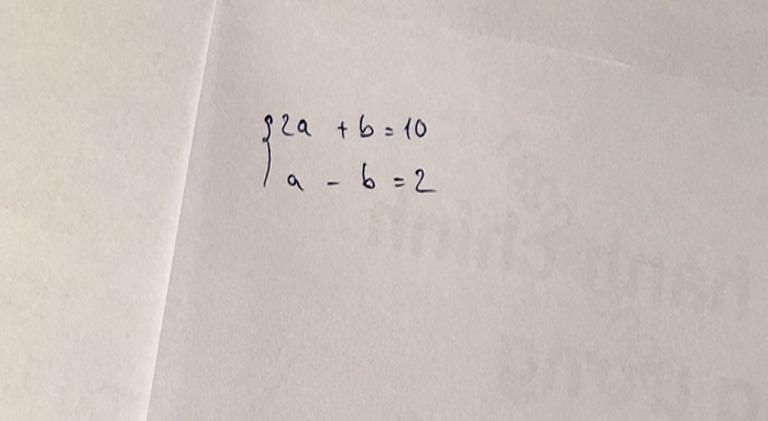 2a + b = 10
a - b = 2